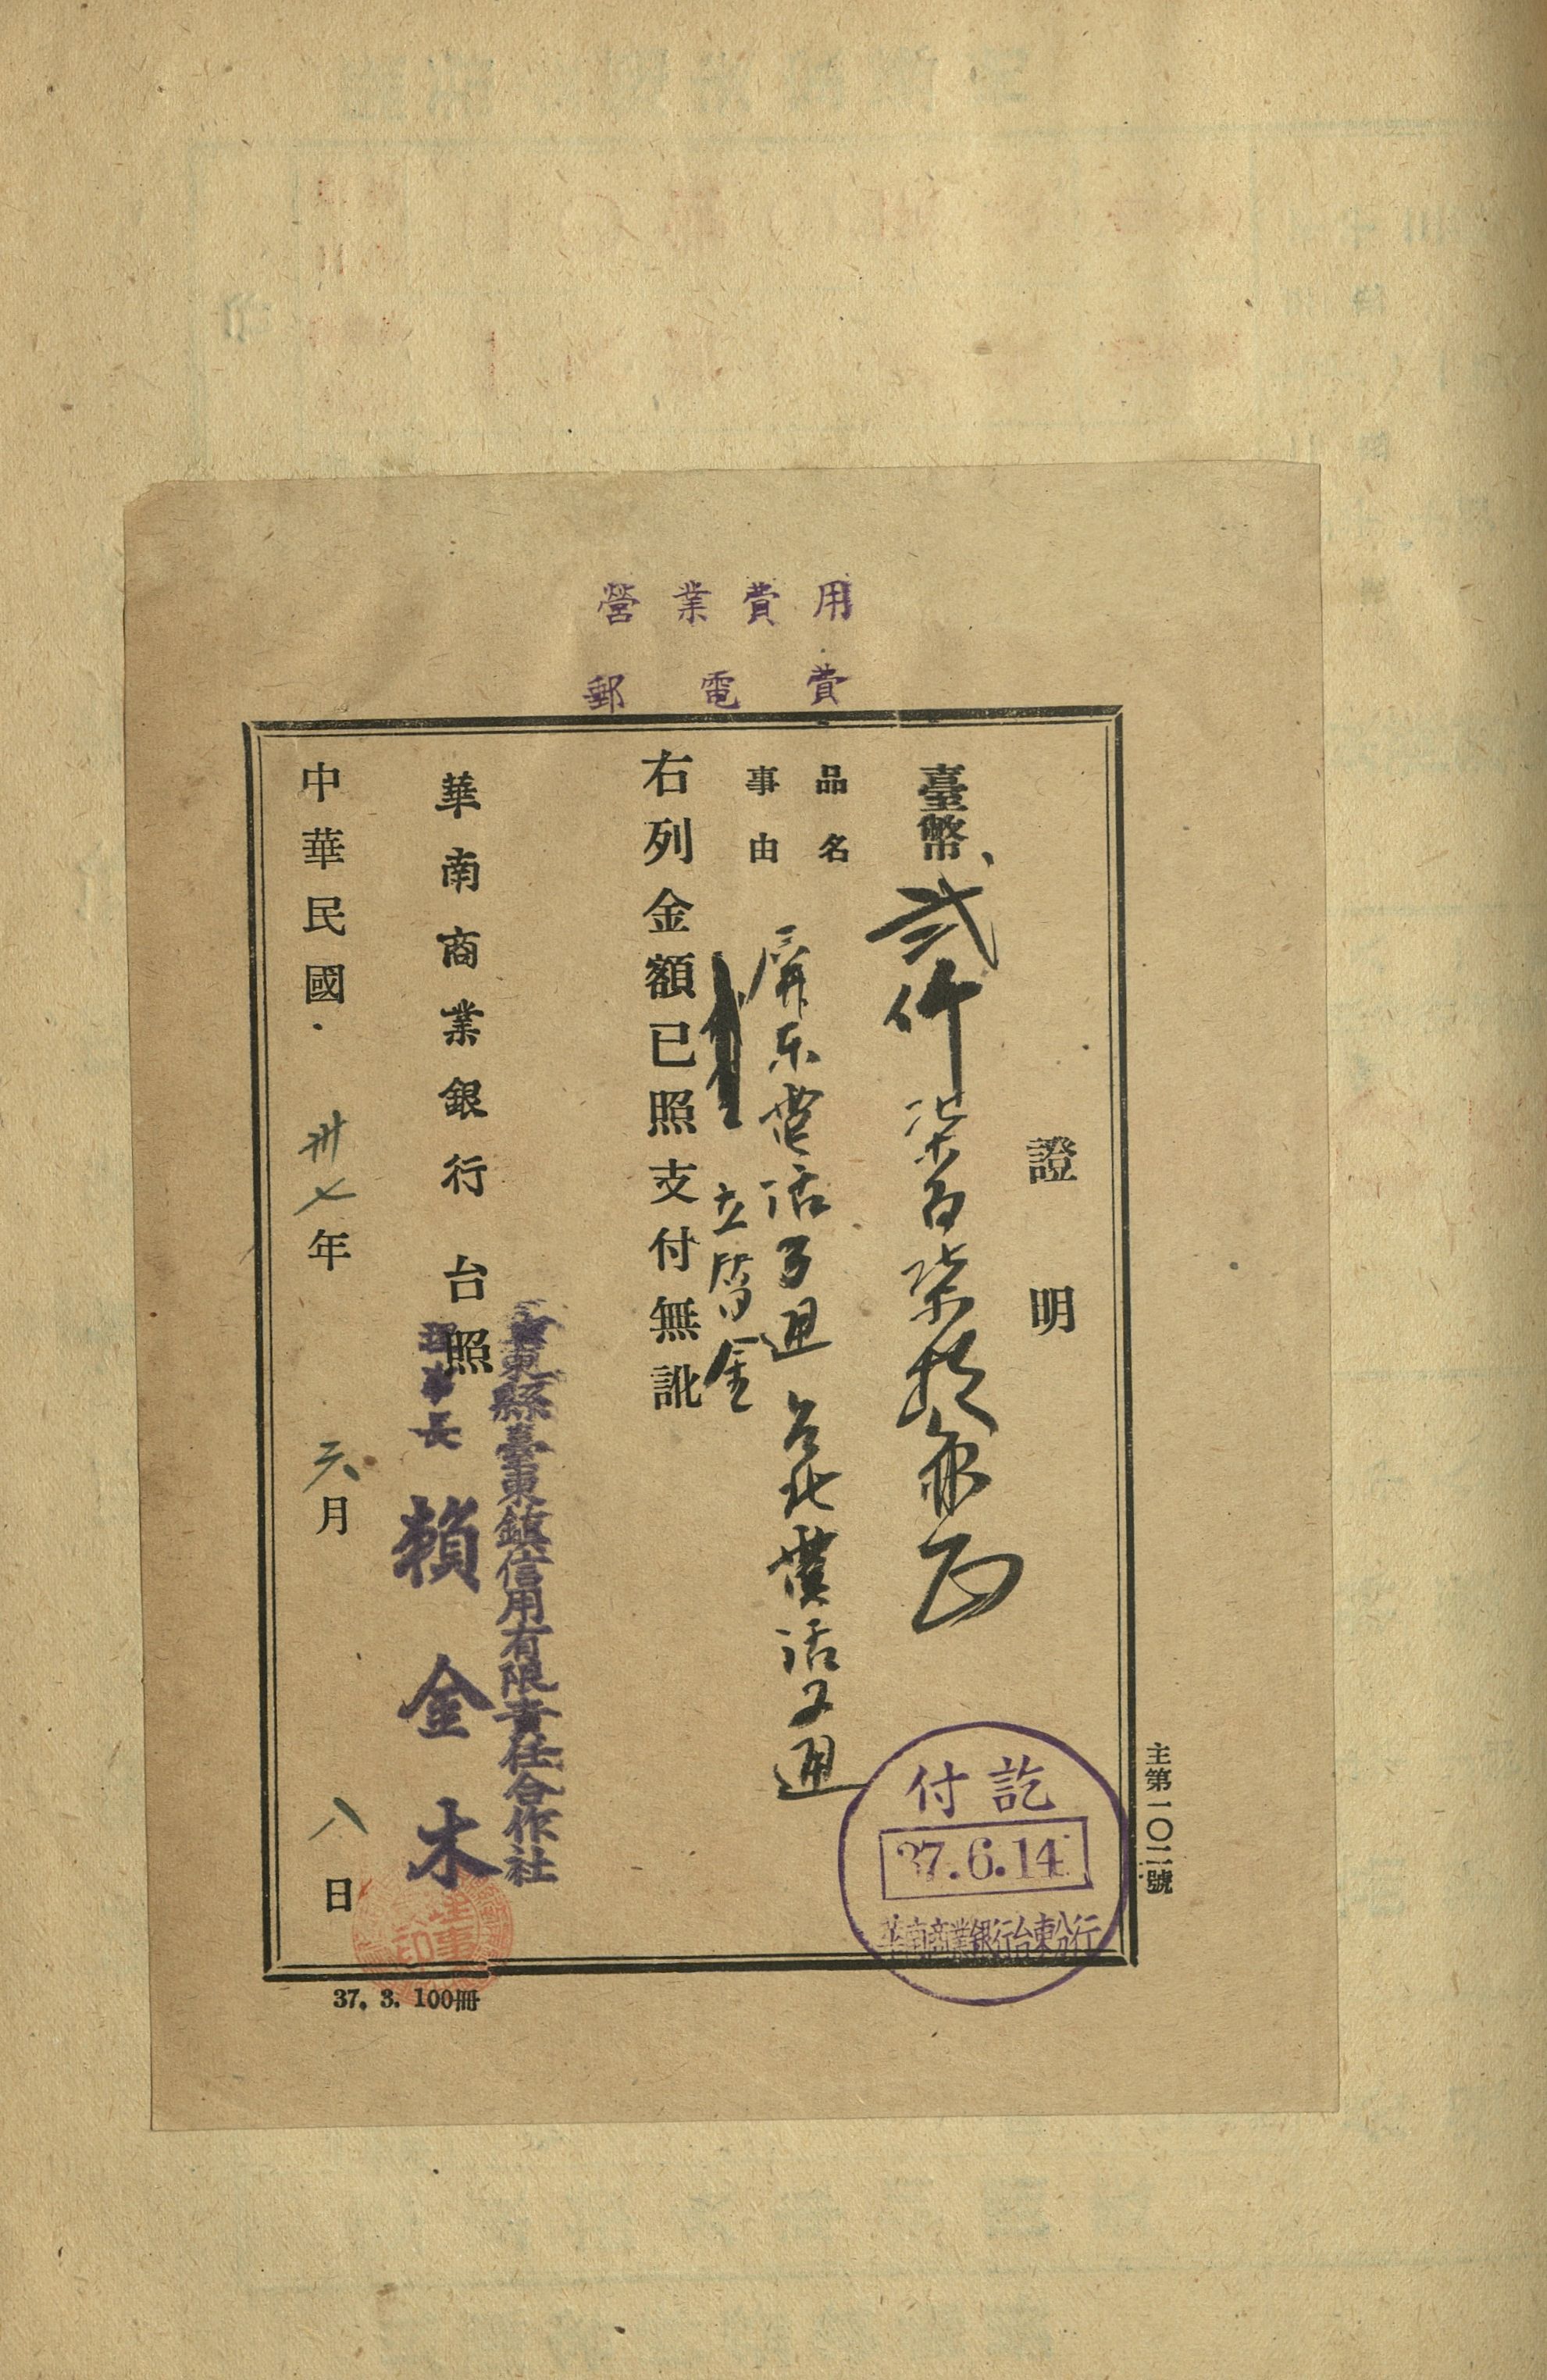 營業費用
郵電費
主第一〇二號
證明
臺幣、貳仟柒百柒拾元正
品名
事由
屏東電話3通 台北電話2通
立替金
右列金額已照支付無訛
華南商業銀行 台照
臺東縣臺東鎮信用有限責任合作社
理事長 賴金木
中華民國 卅七年 六月 八日
付訖
37.6.14
華南商業銀行台東分行
理事
印
37. 3. 100冊